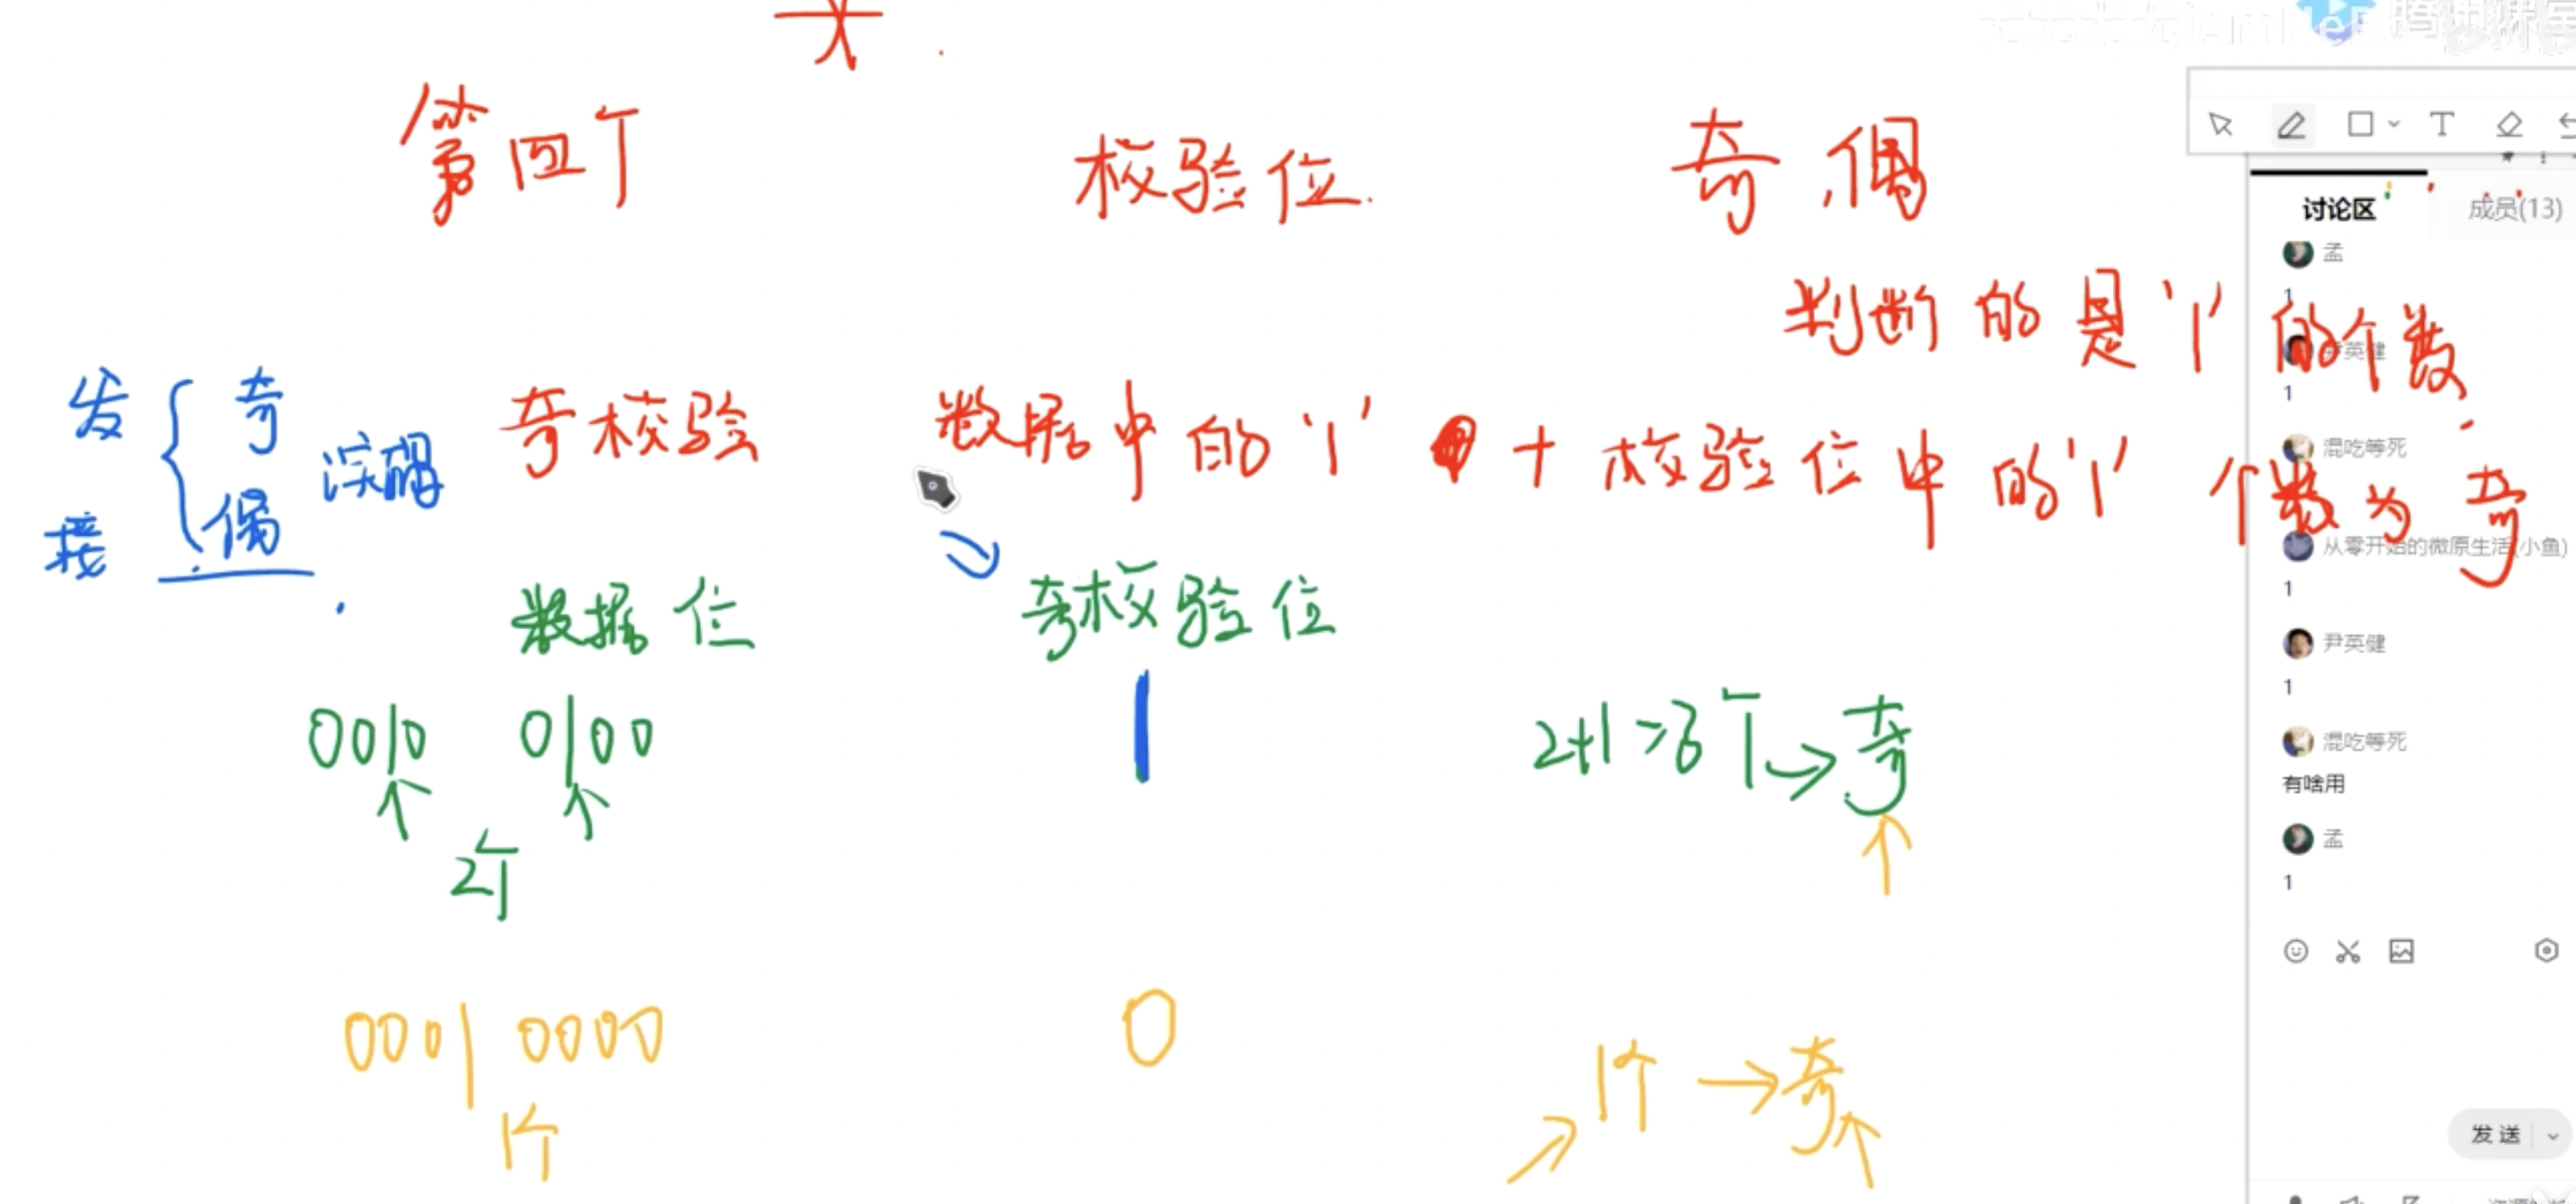 第四个 校验位. 奇,偶
判断的是'1'的个数.
发 奇 奇校验 数据中的'1' + 校验位中的'1'个数为奇
接 偶
数据位 奇校验位
0010 0100 1 2+1=>3个→奇
2个
0001 0000 0 1个→奇
1个
讨论区 成员(13)
孟
1
尹英健
1
混吃等死
从零开始的微原生活(小鱼)
1
尹英健
1
混吃等死
有啥用
孟
1
发送